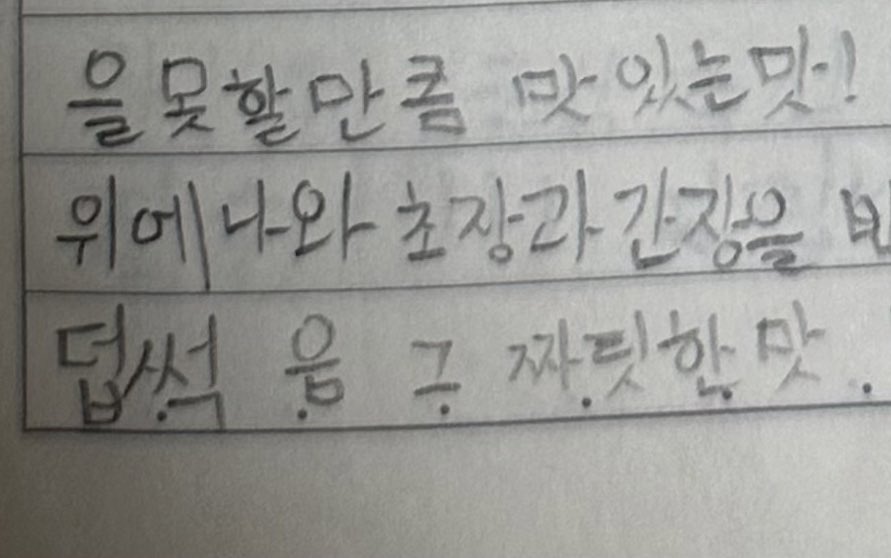 을못할만큼 맛있는맛!
위에나와 초장과간장을
덥썩 음 그 짜릿한맛.